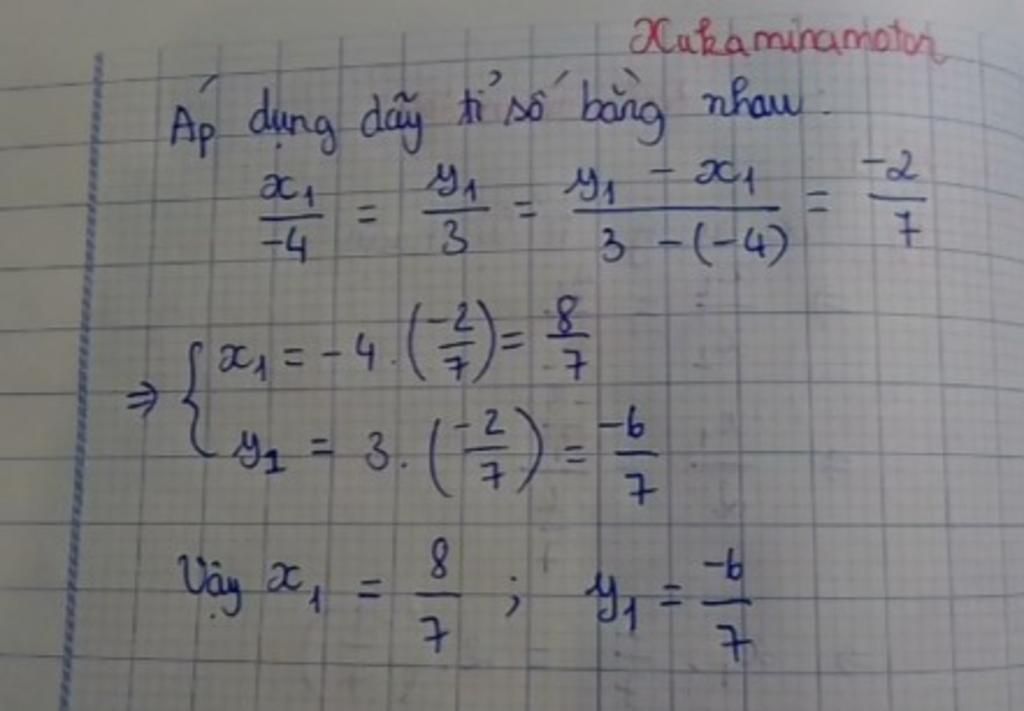 Xukaminamoton
Áp dụng dãy tỉ số bằng nhau.
x₁/-4 = y₁/3 = (y₁ - x₁)/(3 - (-4)) = -2/7
⇒ { x₁ = -4 . (-2/7) = 8/7
y₁ = 3 . (-2/7) = -6/7
Vậy x₁ = 8/7 ; y₁ = -6/7